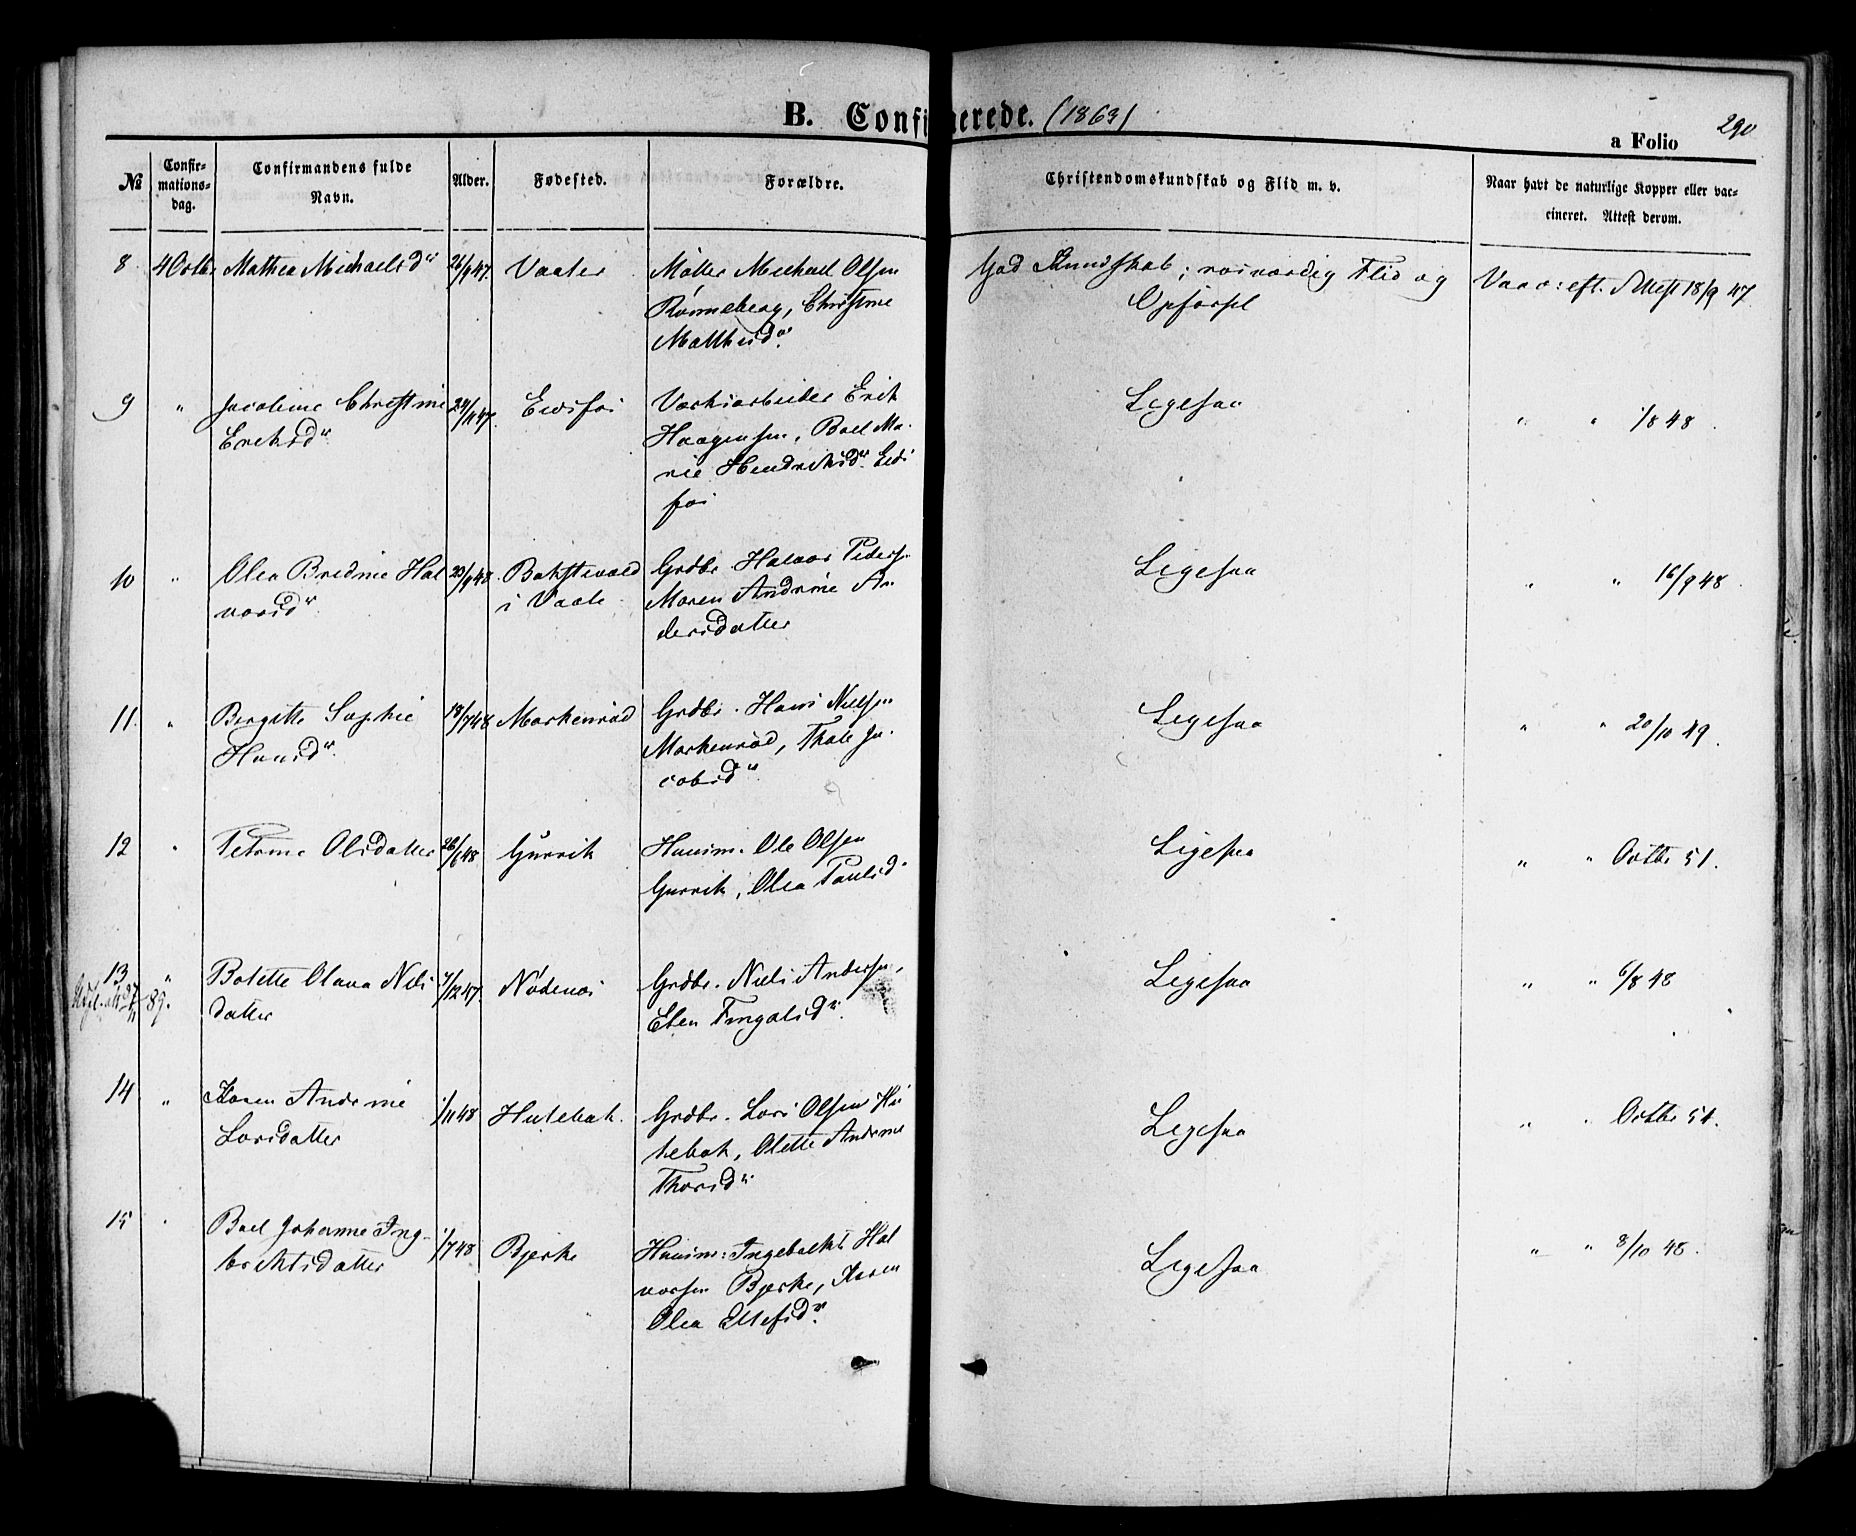 B. Confirmerede. (1863)
290
a Folio
№
Confir-
mations-
dag.
Confirmandens fulde
Navn.
Alder.
Fødested.
Forældre.
Christendomskundskab og Flid m. v.
Naar havt de naturlige Kopper eller vac-
cineret. Attest derom.
8 4 Octbr Mathea Michaelsdr 26/9 47. Vaaler Møller Michael Olsen
Rønneberg, Christine
Mathisdr.
God Kundskab; rosværdig Flid og
Opførsel
Vacc: eft. Attest 18/9 47
9 " Jacobine Christine
Eriksdr. 24/11 47. Eidsfos Værksarbeider Erik
Haagensen, Boel Ma-
rie Hendriksdr. Eids
fos
Ligesaa " " 1/8 48.
10 " Olea Bredine Hal
vorsdr. 20/9 48.
i Vaale. Grdbr. Halvor Peders.
Maren Andrine An
dersdatter
Ligesaa " " 16/9 48.
11. " Birgitte Sophie
Hansdr. 18/7 48 Markenrød Grdbr. Hans Nielsen
Markenrød, Thale Ja-
cobsdr.
Ligesaa " " 20/10 49.
12 " Petrine Olsdatter 26/6 48 Gurvik Husm. Ole Olsen
Gurvik, Olea Paulsd.
Ligesaa " " Octbr 51.
13 " Bolette Olava Nils
datter 4/12 47. Nødenæs Grdbr. Niels Andersen,
Elen Tingalsdr.
89.
Ligesaa " " 6/8 48
14 " Karen Andrine
Larsdatter 1/11 48 Hulebak. Grdbr. Lars Olsen Hu
lebak, Olette Andrine
Thorsdr.
Ligesaa " " Octbr 51.
15 " Boel Johanne Ing-
brektsdatter 1/7 48 Bjerke Husm: Ingebrekt Hal
vorsen Bjerke, Karen
Olea Ellefsdr.
Ligesaa " " 8/10 48.